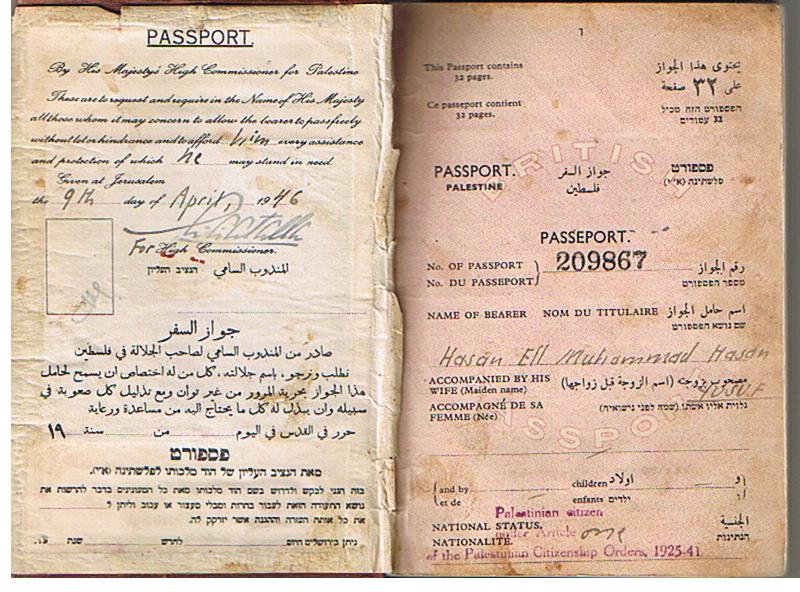 PASSPORT.
By His Majesty's High Commissioner for Palestine
These are to request and require in the Name of His Majesty
all those whom it may concern to allow the bearer to pass freely
without let or hindrance and to afford him every assistance
and protection of which he may stand in need.
Given at Jerusalem
the 9th day of April, 1946
For High Commissioner.
المندوب السامي הנציב העליון
جواز السفر
صادر من المندوب السامي لصاحب الجلالة في فلسطين
نطلب ونرجو، باسم جلالته، كل من له اختصاص ان يسمح لحامل
هذا الجواز بحرية المرور من غير توان ومع تذليل كل صعوبة في
سبيله وان يبذل له كل ما يحتاج اليه من مساعدة ورعاية
حرر في القدس في اليوم من سنة ١٩
פספורט
מאת הנציב העליון של הוד מלכותו לפלשתינה (א״י).
בזה הנני לבקש ולדרוש בשם הוד מלכותו מאת כל הממונים בדבר להרשות את
נושא התעודה הזאת לעבור בחרות ומבלי מעצור או עכוב וליתן ל
את כל אותה העזרה וההגנה אשר יזדקק לה.
ניתן בירושלים היום לחדש שנת 19
1
This Passport contains
32 pages.
يحتوي هذا الجواز
على ٣٢ صفحة
Ce passeport contient
32 pages.
הפספורט הזה מכיל
32 עמודים
BRITISH
PASSPORT.
PALESTINE
جواز السفر
فلسطين
פספורט
פלשתינה (א״י)
PASSEPORT.
No. OF PASSPORT
No. DU PASSEPORT
209867
رقم الجواز
מספר הפספורט
NAME OF BEARER NOM DU TITULAIRE اسم حامل الجواز
שם נושא הפספורט
Hasan Eff Muhammad Hasan
YUSUF
ACCOMPANIED BY HIS
WIFE (Maiden name)
مصحوب بزوجته (اسم الزوجة قبل زواجها)
ACCOMPAGNÉ DE SA
FEMME (Née)
נלוית אליו אשתו (שמה לפני נישואיה)
PASSPORT
and by
et de
children اولاد
enfants ילדים
و
ו
Palestinian citizen
NATIONAL STATUS.
الجنسية
under Article one
NATIONALITÉ.
הנתינות
of the Palestinian Citizenship Orders, 1925-41